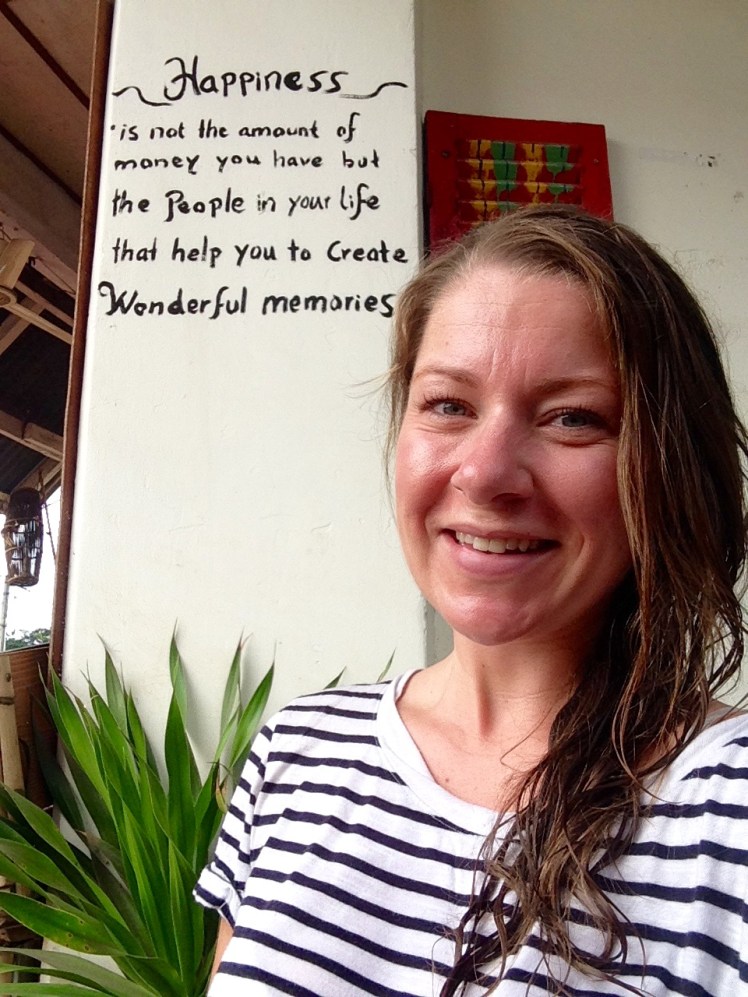 Happiness
is not the amount of
money you have but
the People in your life
that help you to Create
Wonderful memories